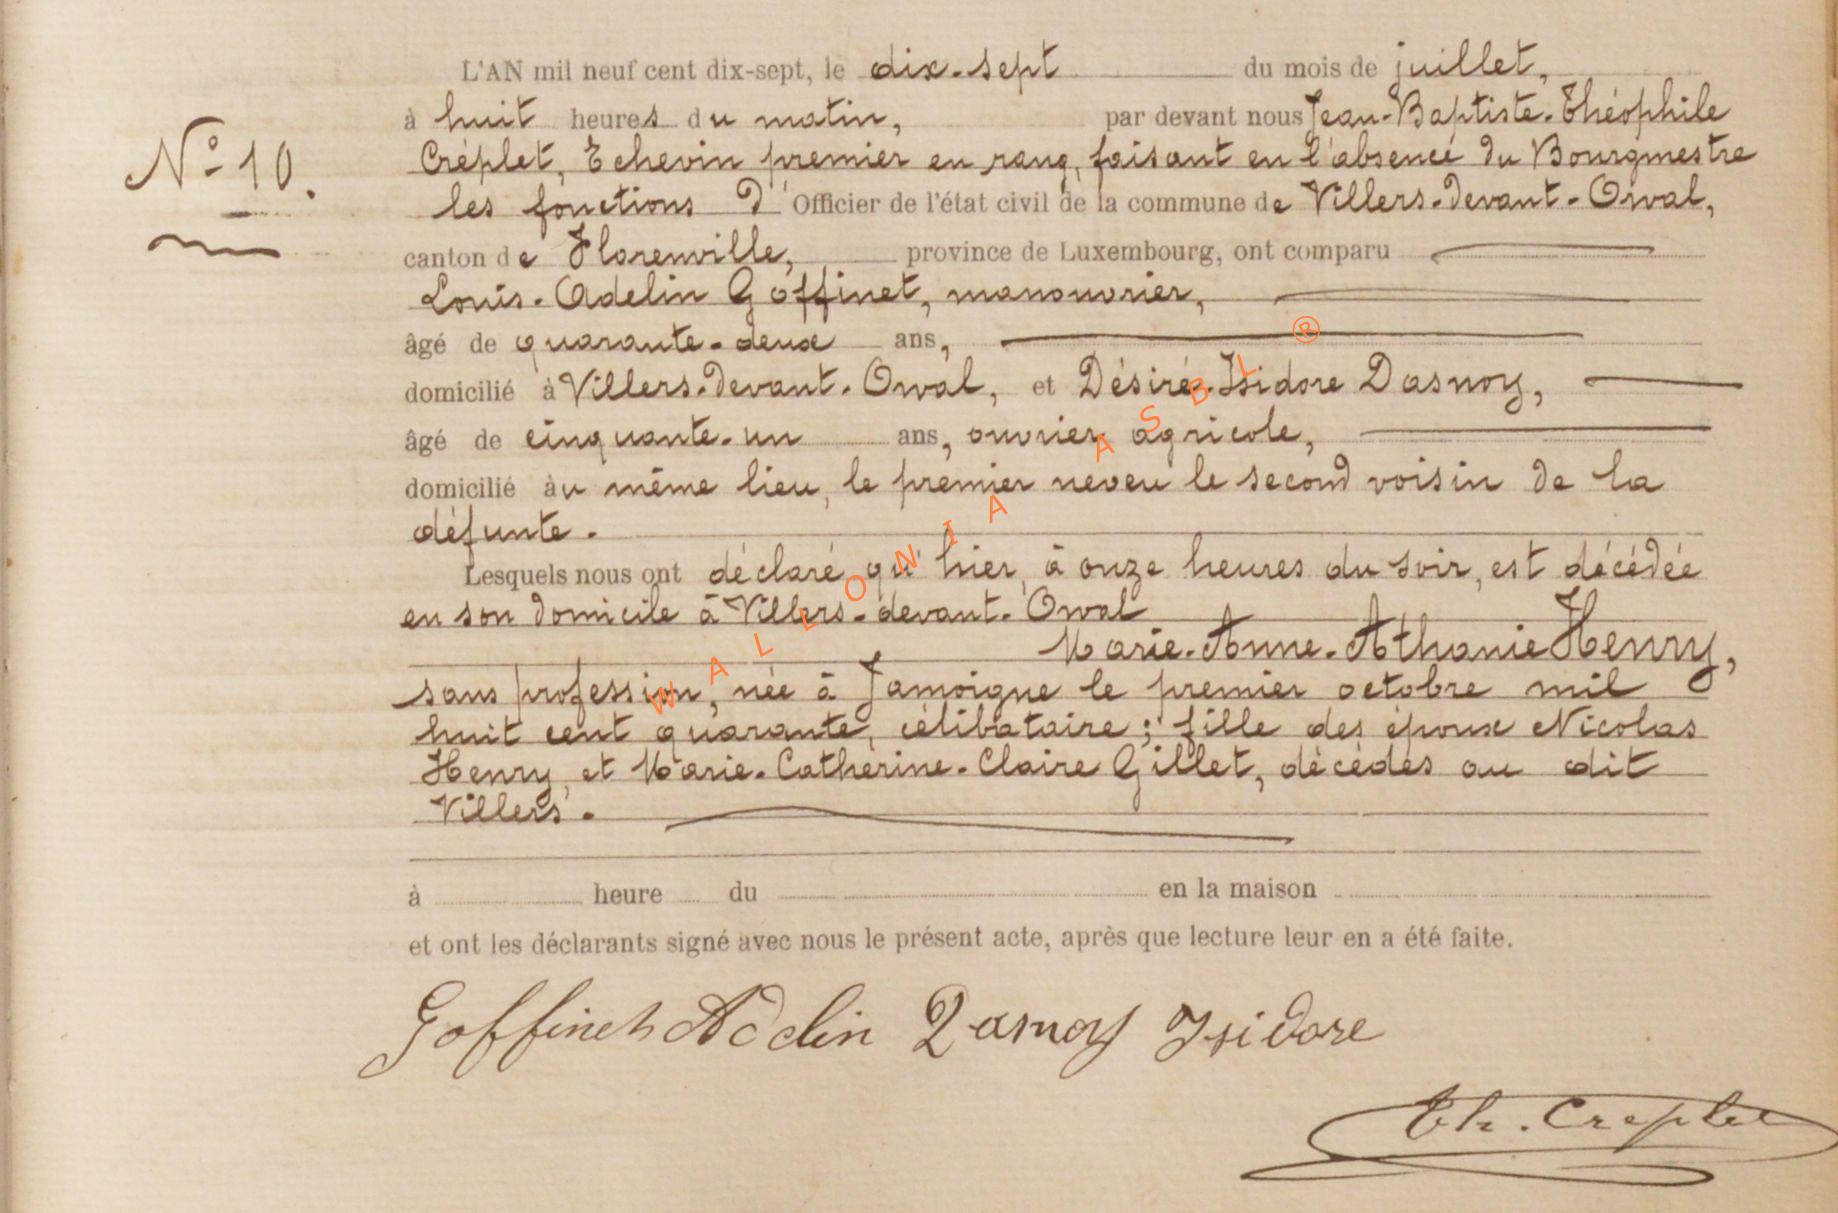 L'AN mil neuf cent dix-sept, le dix-sept du mois de juillet,
à huit heures du matin, par devant nous Jean-Baptiste-Théophile
N° 10.
Créplet, Echevin premier en rang, faisant en l'absence du Bourgmestre
les fonctions d'Officier de l'état civil de la commune de Villers-devant-Orval,
canton de Florenville, province de Luxembourg, ont comparu
Louis-Adelin Goffinet, manouvrier,
âgé de quarante-deux ans,
domicilié à Villers-devant-Orval, et Désiré-Isidore Dasnoy,
âgé de cinquante-un ans, ouvrier agricole,
domicilié au même lieu, le premier neveu le second voisin de la
défunte.
Lesquels nous ont déclaré qu'hier, à onze heures du soir, est décédée
en son domicile à Villers-devant-Orval
Marie-Anne-Athanie Henry,
sans profession, née à Jamoigne le premier octobre mil
huit cent quarante, célibataire; fille des époux Nicolas
Henry, et Marie-Catherine-Claire Gillet, décédés au dit
Villers.
à heure du en la maison
et ont les déclarants signé avec nous le présent acte, après que lecture leur en a été faite.
Goffinet Adelin Dasnoy Isidore
Th. Creplet
WALLONIA ASBL ®